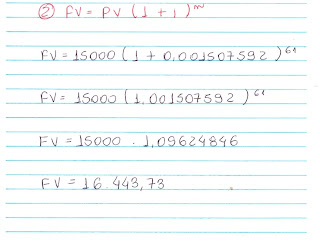 ② FV = PV (1 + i)ⁿ
FV = 15000 (1 + 0,001507592)⁶¹
FV = 15000 (1,001507592)⁶¹
FV = 15000 . 1,09624846
FV = 16.443,73